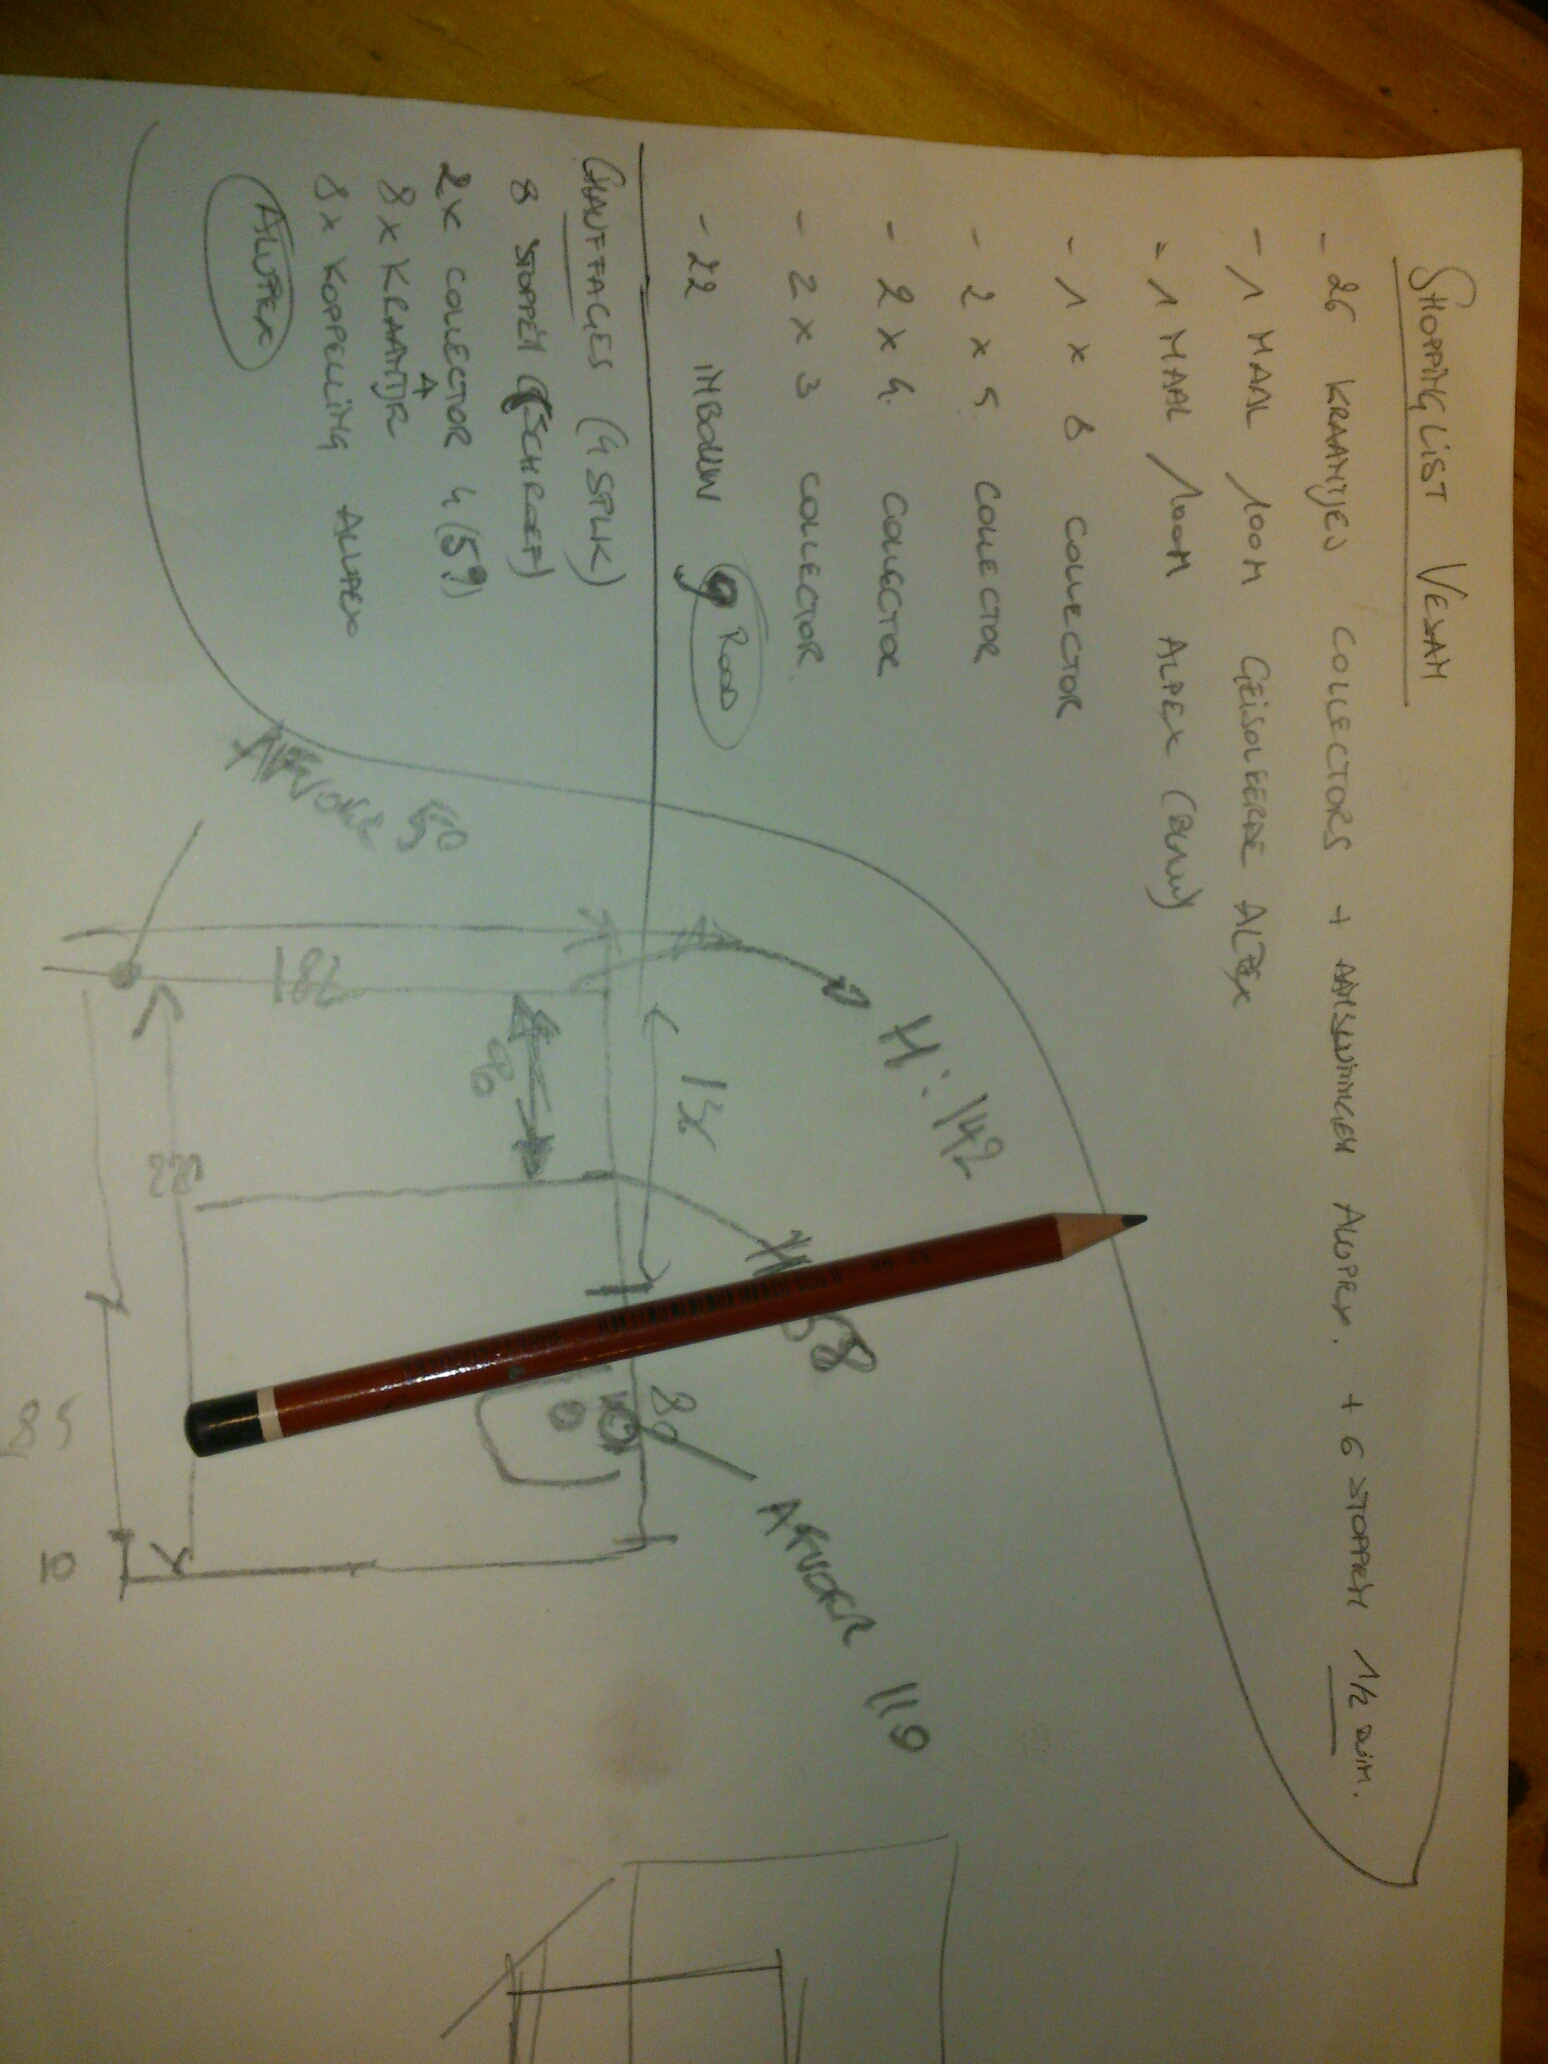 SHOPPINGLIST VESAM
- 26 KRAANTJES COLLECTORS + AANSLUITINGEN ALUPEX. + 6 STOPPEN 1/2 DUIM.
- 1 MAAL 100M GEISOLEERDE ALPEX
- 1 MAAL 100M ALPEX
- 1 x 8 COLLECTOR
- 2 x 5 COLLECTOR
- 2 x 4 COLLECTOR
- 2 x 3 COLLECTOR
- 22 INBOUW ROOD
CHAUFFAGES (4 STUK)
8 STOPPEN (SCHROEF)
2x COLLECTOR 4 (5?)
8x KRAANTJE
8x KOPPELLING ALUPEX
ALUPEX
AFVOER 50
H: 142
182
136
90
H 58
80
AFVOER 119
85
10